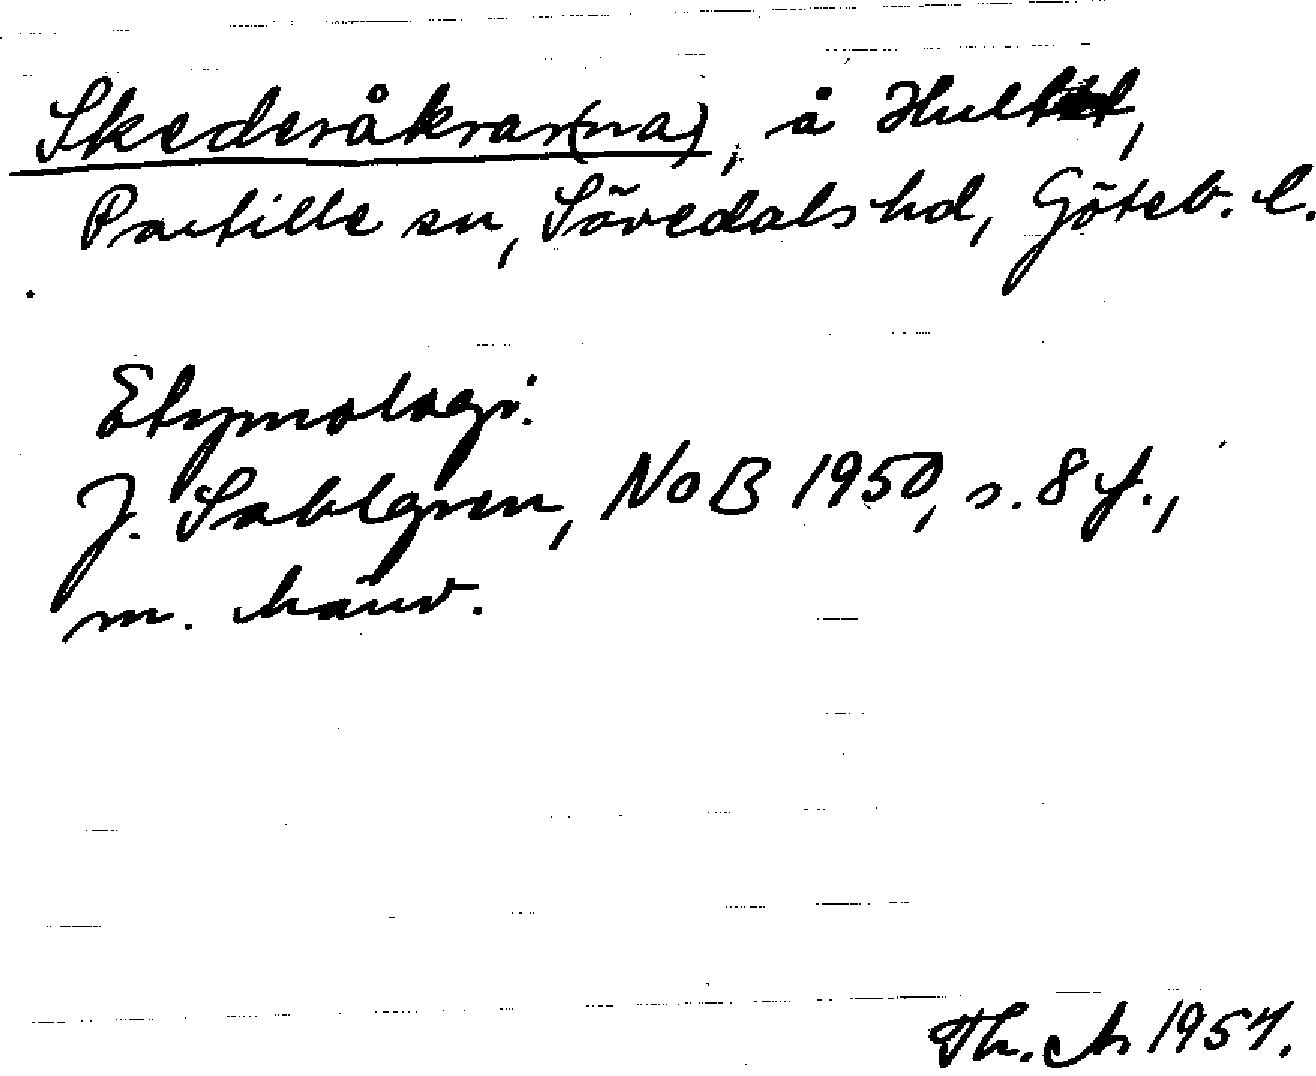 Skederåkrar(na), å Hultet,
Partille sn, Sävedals hd, Göteb. l.
Etymologi.
J. Sahlgren, NoB 1950, s. 8 f.,
m. hänv.
Th. A 1957.